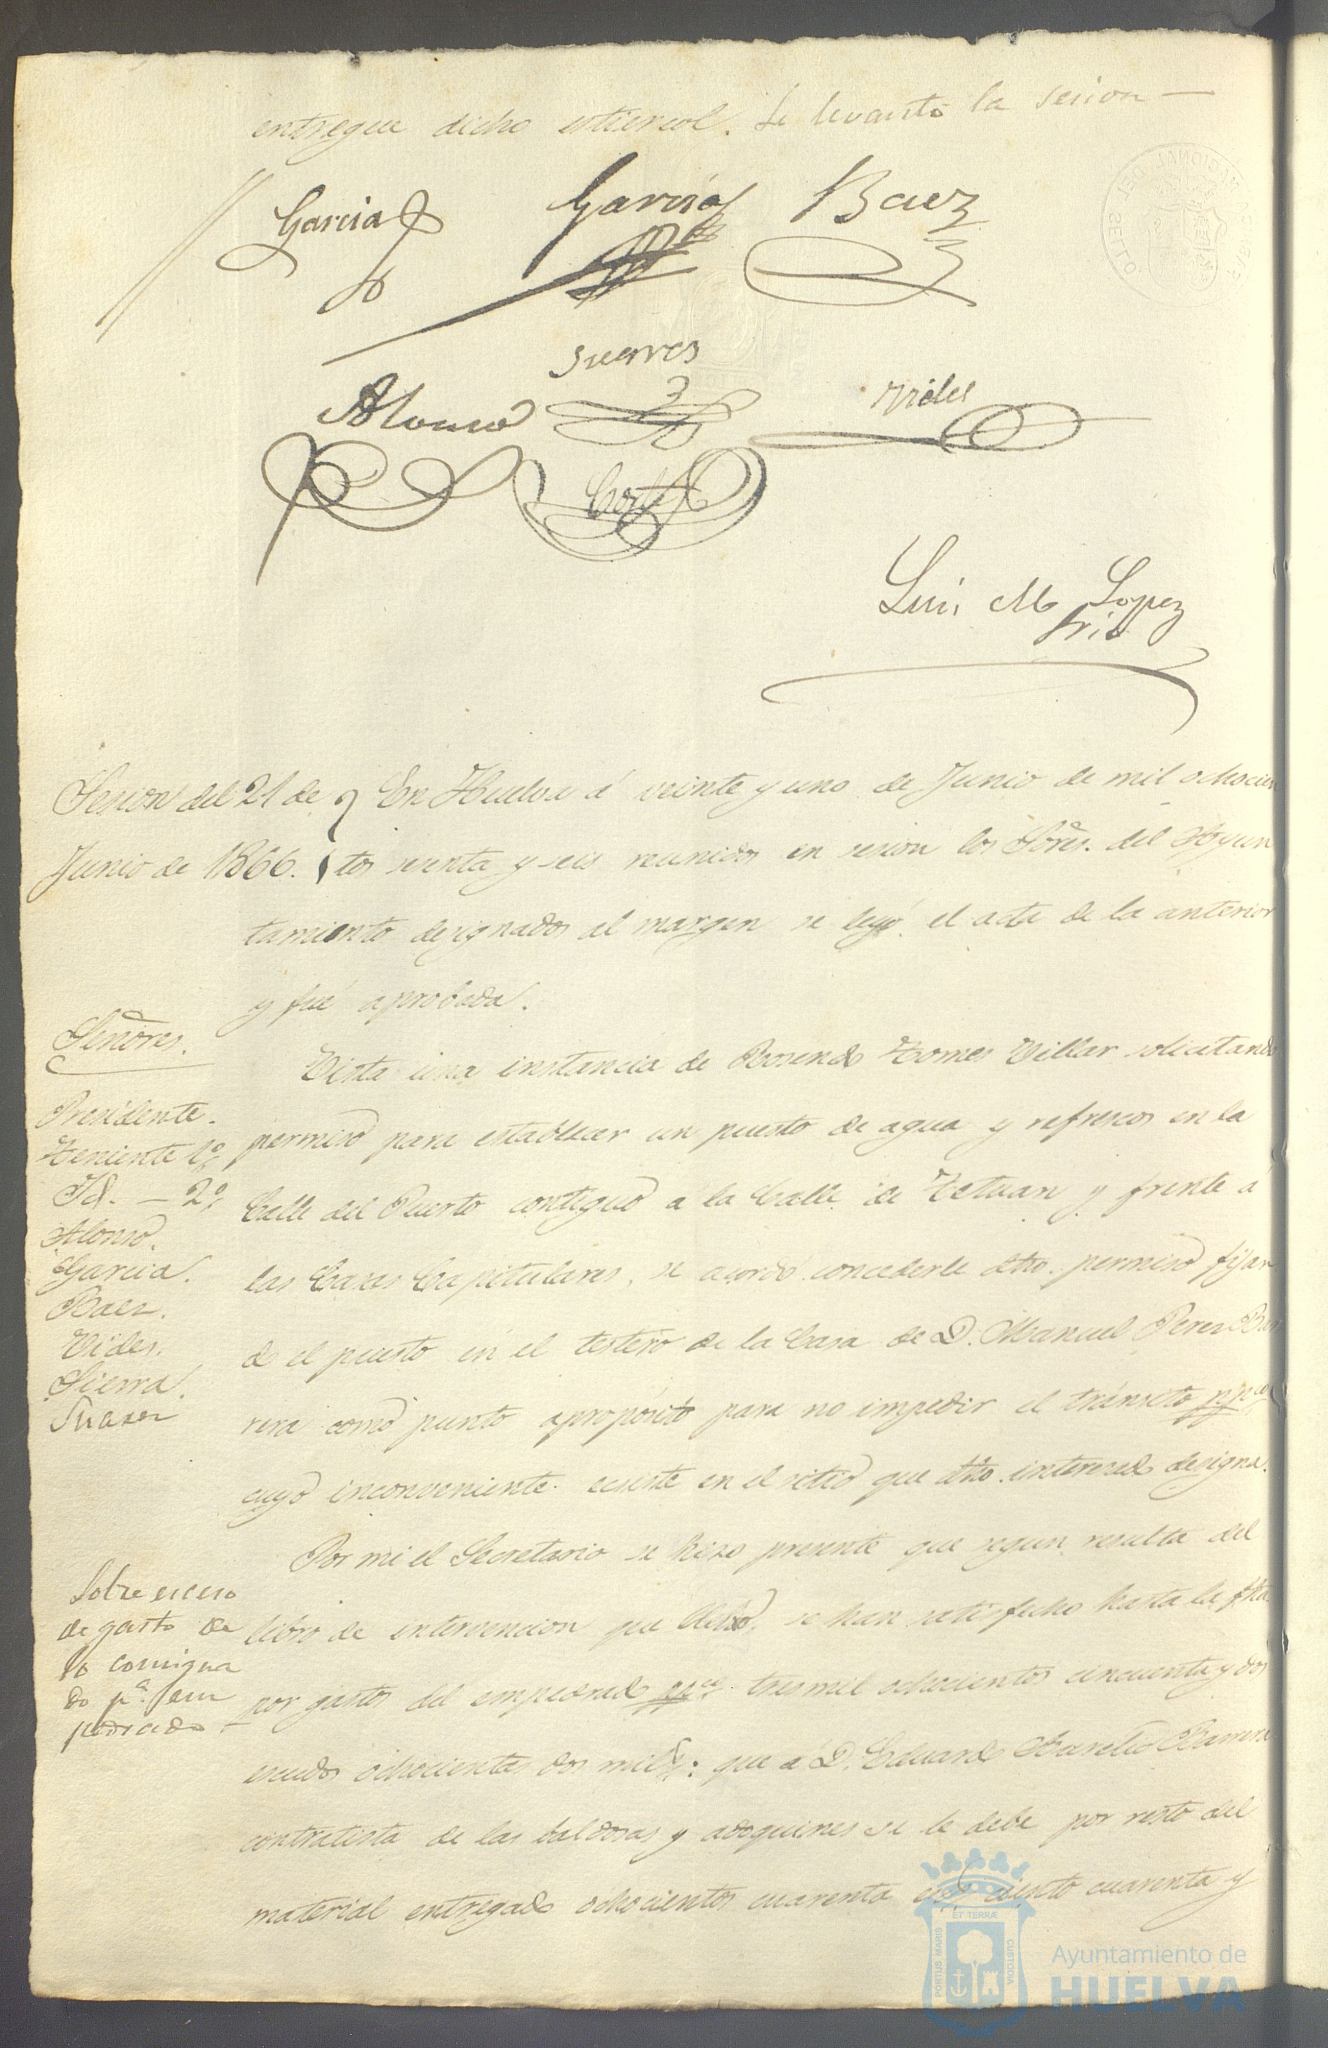 entregue dicho estiercol. Se levantó la sesion —
Garcia
Garcia
Baez
Suarez
Alonso
Vides
Cortes
Luis M Lopez
Srio
Sesion del 21 de
Junio de 1866.
En Huelva á veinte y uno de Junio de mil ochocien
tos sesenta y seis reunidos en sesion los Sõres. del Ayun
tamiento designados al margen se leyó el acta de la anterior
y fué aprobada.
Señores.
Presidente.
Teniente 1º
Id. — 2º
Alonso.
Garcia.
Baez.
Vides.
Sierra.
Suarez
Vista una instancia de Rosendo Gomes Villar solicitando
permiso para establecer un puesto de agua y refrescos en la
Calle del Puerto contiguo a la Calle de Tetuan y frente á
las Casas Capitulares, se acordó concederle dho. permiso fijan
do el puesto en el testero de la Casa de D. Manuel Perez Bar
rera como punto apropósito para no impedir el tránsito ppco
cuyo inconveniente ecsiste en el sitio que dho. interesado designa.
Sobre esceso
de gasto de
lo consigna
do pª. em
pedrado
Por mi el Secretario se hizo presente que segun resulta del
libro de intervencion que llevo, se han satisfecho hasta la fha
por gastos del empedrado ppco tres mil ochocientos cincuenta y dos
escudos ochocientas dos mils: que á D. Eduardo Aurelio Barrera
contratista de las baldosas y adoquines se le debe por resto del
material entregado ochocientos cuarenta esc ciento cuarenta y
PORTUS MARIS
ET TERRÆ
CUSTODIA
Ayuntamiento de
HUELVA